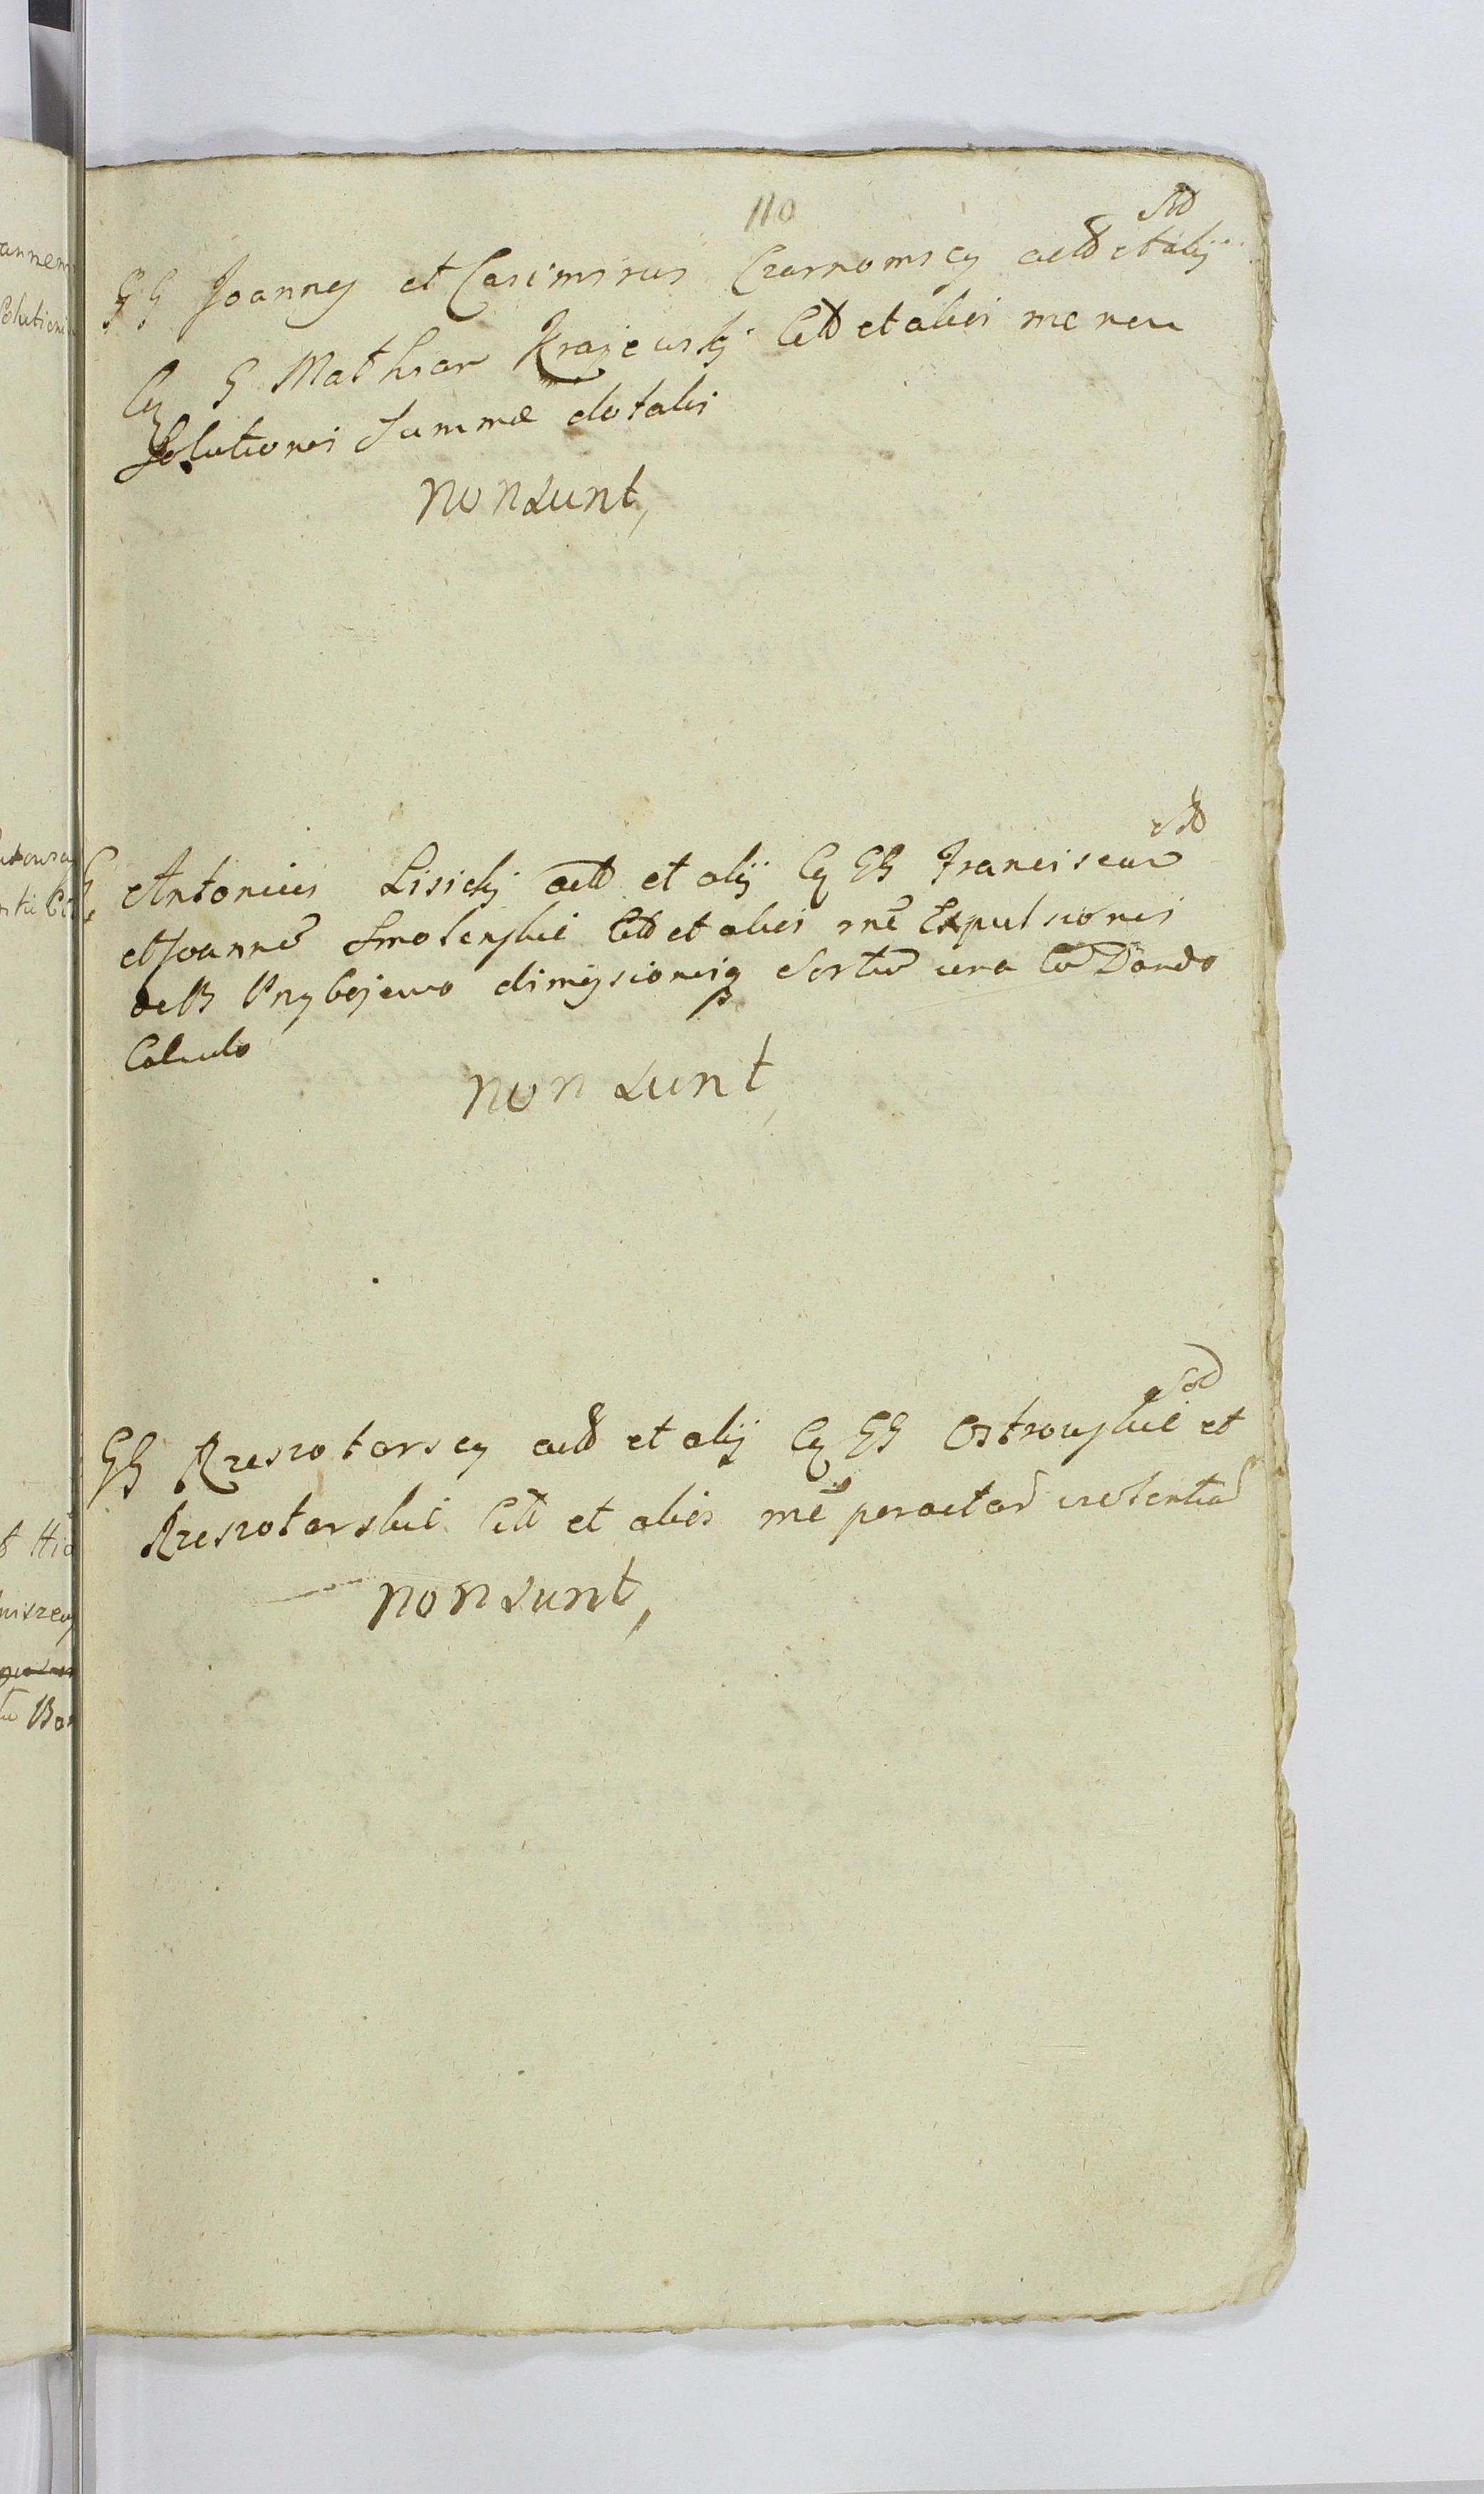 110
GG Joannes et Casimirus Czarnomscy actt et alij
Cq G Mathiam Krajewskj Citt et alios me neu
Solutionis Summæ dotalis
non sunt,
G Antonius Lisickj actt et alij Cq GG Franciscum
et Joanne Smolenskie Citt et alios me Expulsionis
de B Przybojewo dimissionisq Sortium una Cu Dando
Calculo
non sunt,
GG Rzeszotarscy actt et alij Cq GG Ostrowskie et
Rzeszotarskie Citt et alios me peractam
non sunt,